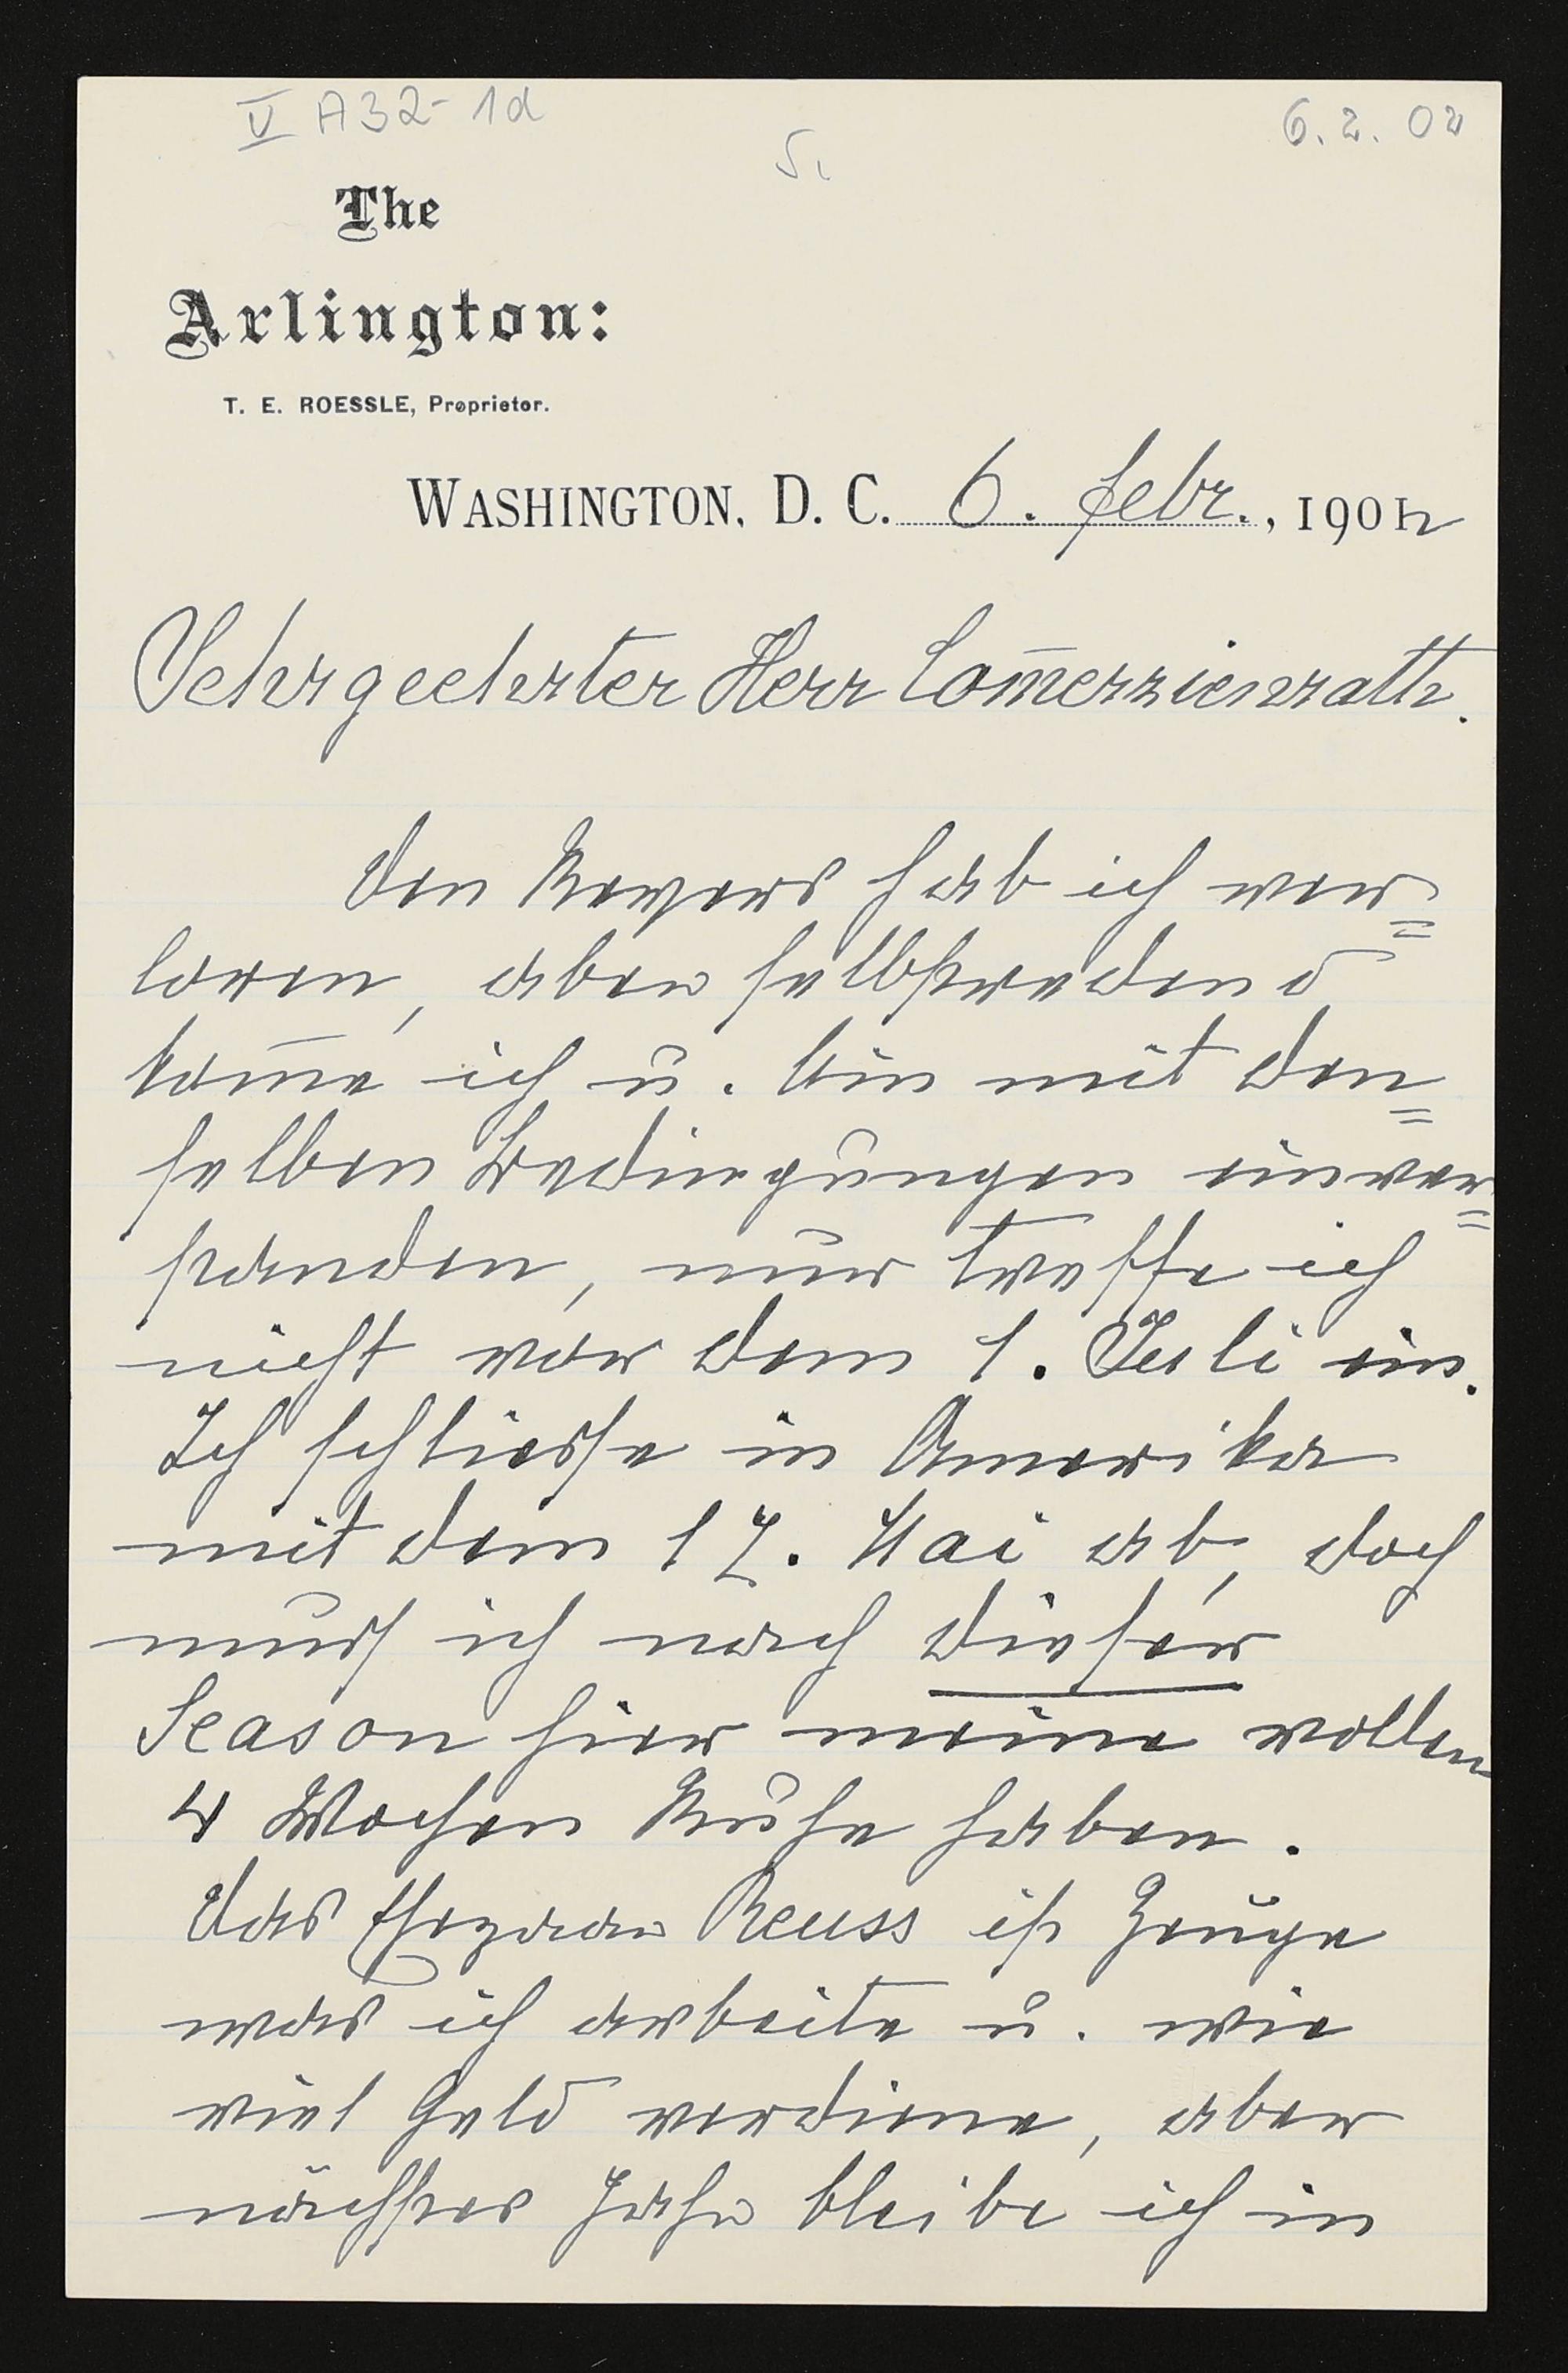 V A32-1d
5.
6.2.02
The
Arlington:
T. E. ROESSLE, Proprietor.
WASHINGTON, D. C. 6. Febr., 1902
Sehrgeehrter Herr Com̅erzienrath.
Den Revers hab ich ver=
loren, aber selbstredend
kom̅e ich u. bin mit den=
selben Bedingungen einver=
standen, nur treffe ich
nicht vor dem 1. Juli ein.
Ich schliesse in Amerika
mit dem 17. Mai ab, doch
muss ich nach dieser
Season hier meine vollen
4 Wochen Ruhe haben.
Das Ehepaar Reuss ist Zeuge
was ich arbeite u. wie
viel Geld verdiene, aber
nächstes Jahr bleibe ich in